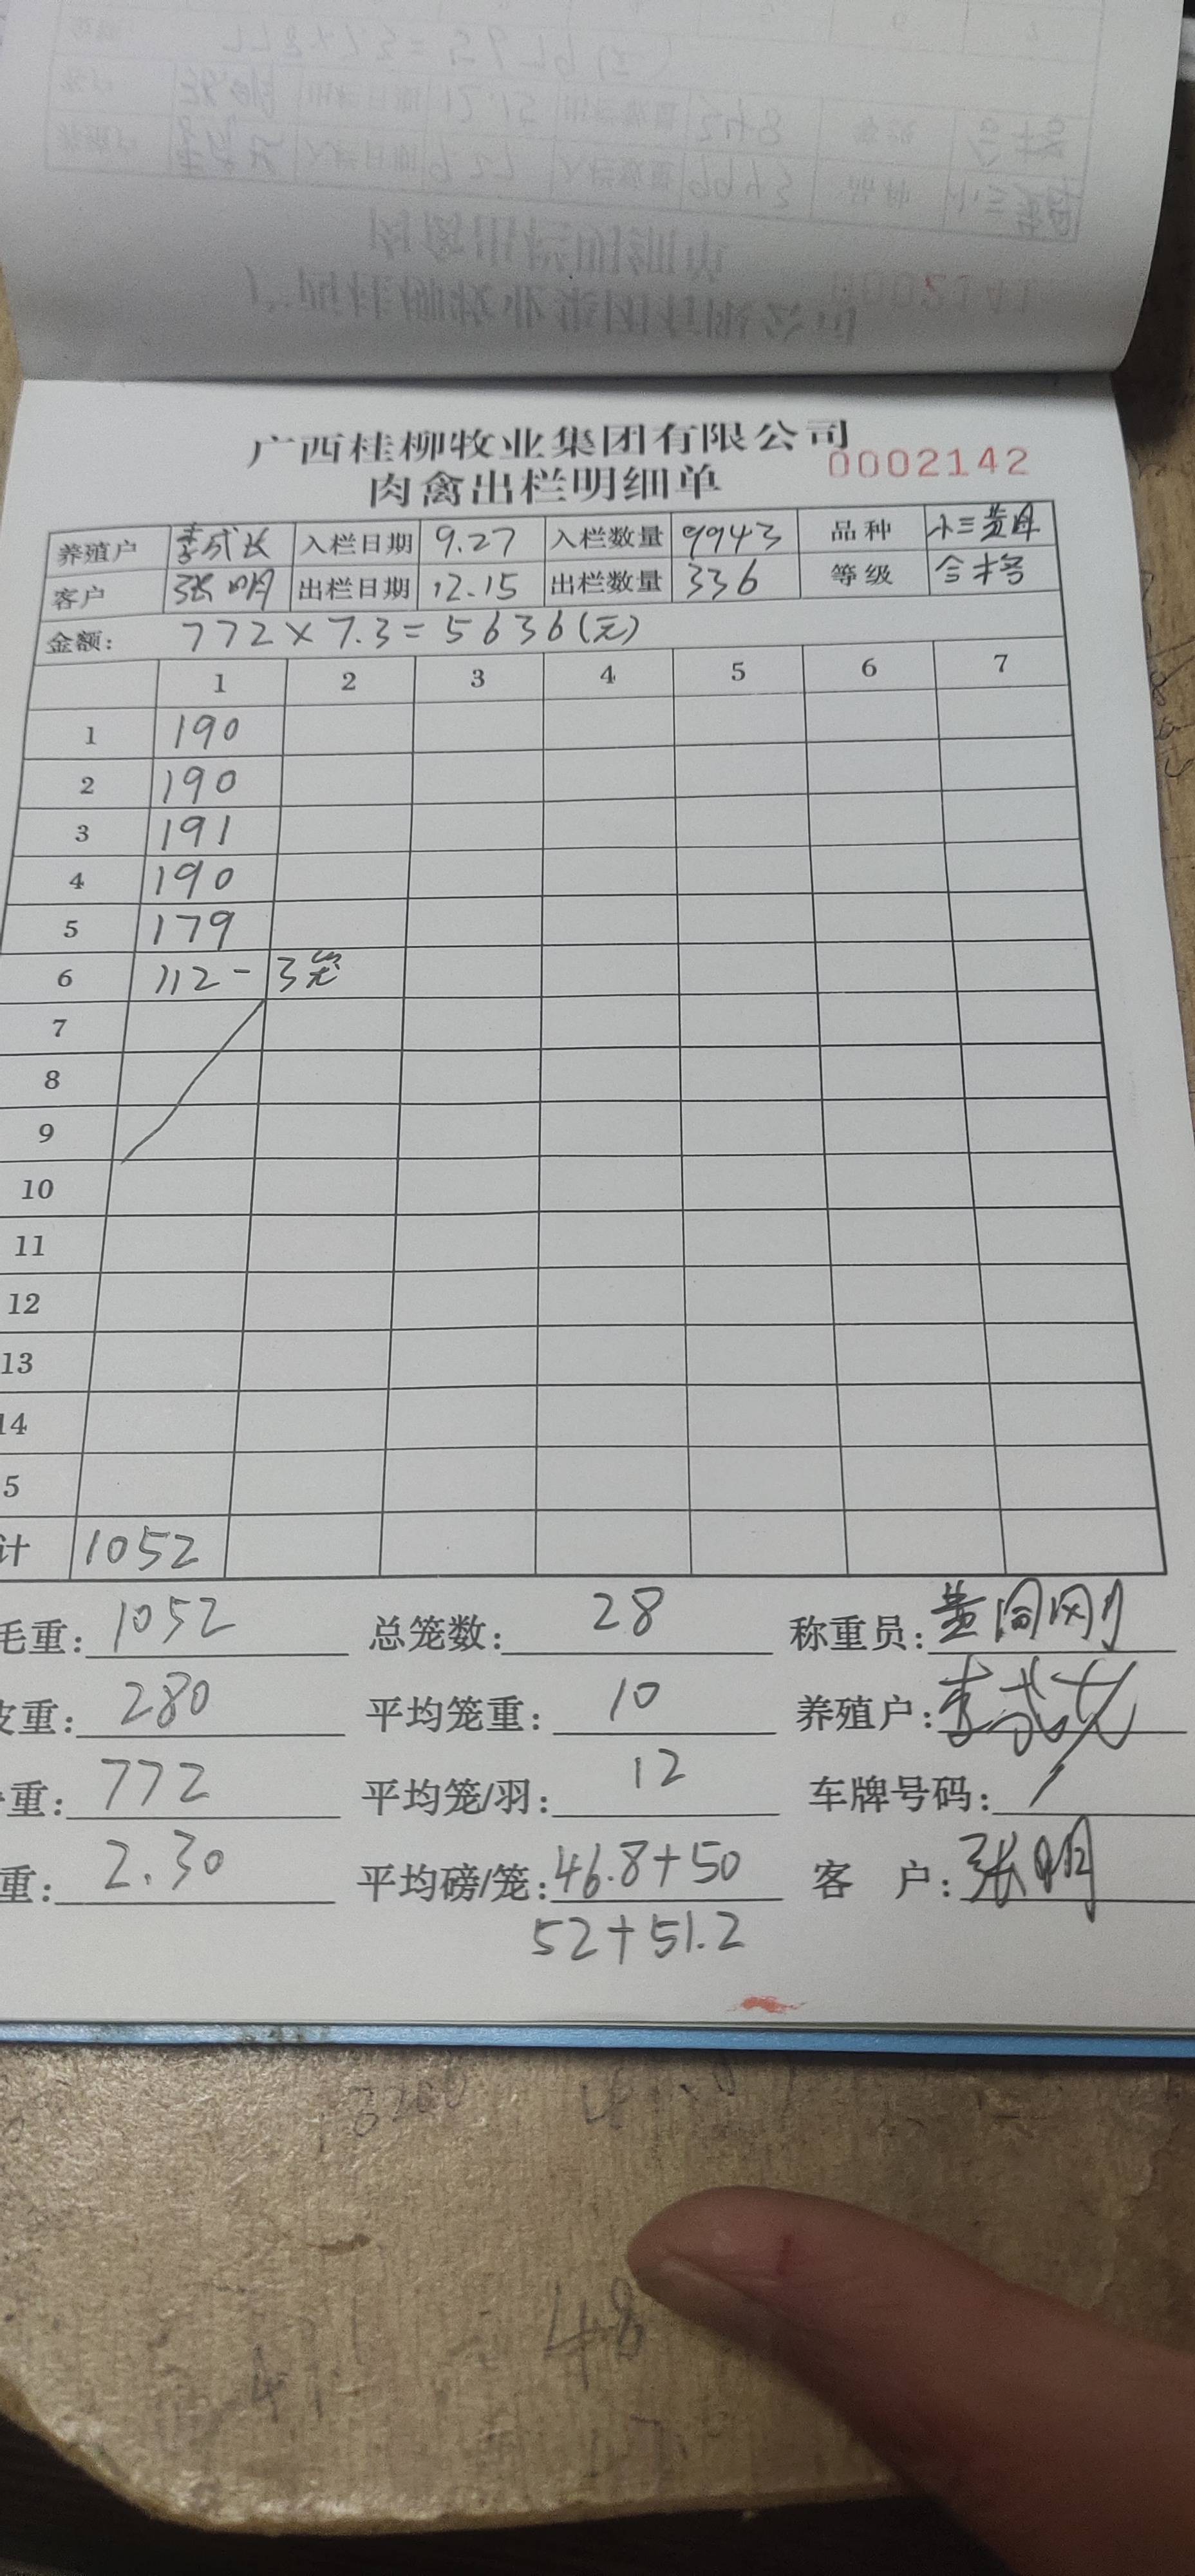 广西桂柳牧业集团有限公司
肉禽出栏明细单 0002142
养殖户 李成长 入栏日期 9.27 入栏数量 9943 品种 小三黄母
客户 张明 出栏日期 12.15 出栏数量 336 等级 合格
金额: 772×7.3=5636(元)
1 2 3 4 5 6 7
1 190
2 190
3 191
4 190
5 179
6 112-3笼
7
8
9
10
11
12
13
14
5
计 1052
毛重: 1052 总笼数: 28 称重员:
皮重: 280 平均笼重: 10 养殖户:
重: 772 平均笼/羽: 12 车牌号码: /
重: 2.30 平均磅/笼: 46.8+50 客 户: 张明
52+51.2
48